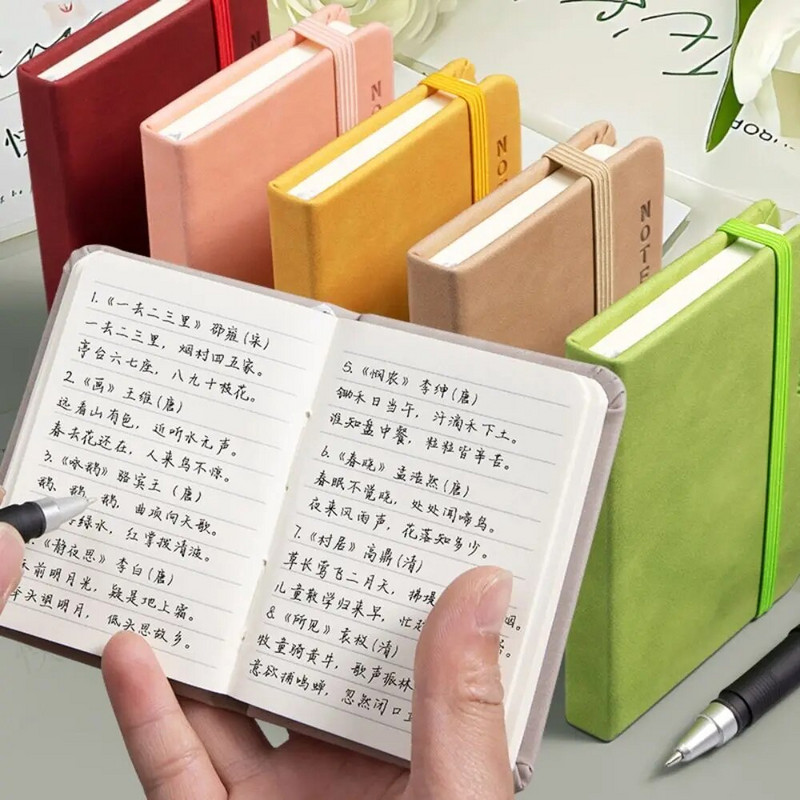 N
NO
NO
NOTE
1.《一去二三里》邵雍(宋)
一去二三里，烟村四五家。
亭台六七座，八九十枝花。
2.《画》王维(唐)
远看山有色，近听水无声。
春去花还在，人来鸟不惊。
3.《咏鹅》骆宾王(唐)
鹅，鹅，鹅，曲项向天歌。
绿水，红掌拨清波。
《静夜思》李白(唐)
前明月光，疑是地上霜。
头望明月，低头思故乡。
5.《悯农》李绅(唐)
锄禾日当午，汗滴禾下土。
谁知盘中餐，粒粒皆辛苦。
6.《春晓》孟浩然(唐)
春眠不觉晓，处处闻啼鸟。
夜来风雨声，花落知多少。
7.《村居》高鼎(清)
草长莺飞二月天，拂堤 烟。
儿童散学归来早，忙
8.《所见》袁枚(清)
牧童骑黄牛，歌声振林
意欲捕鸣蝉，忽然闭口立